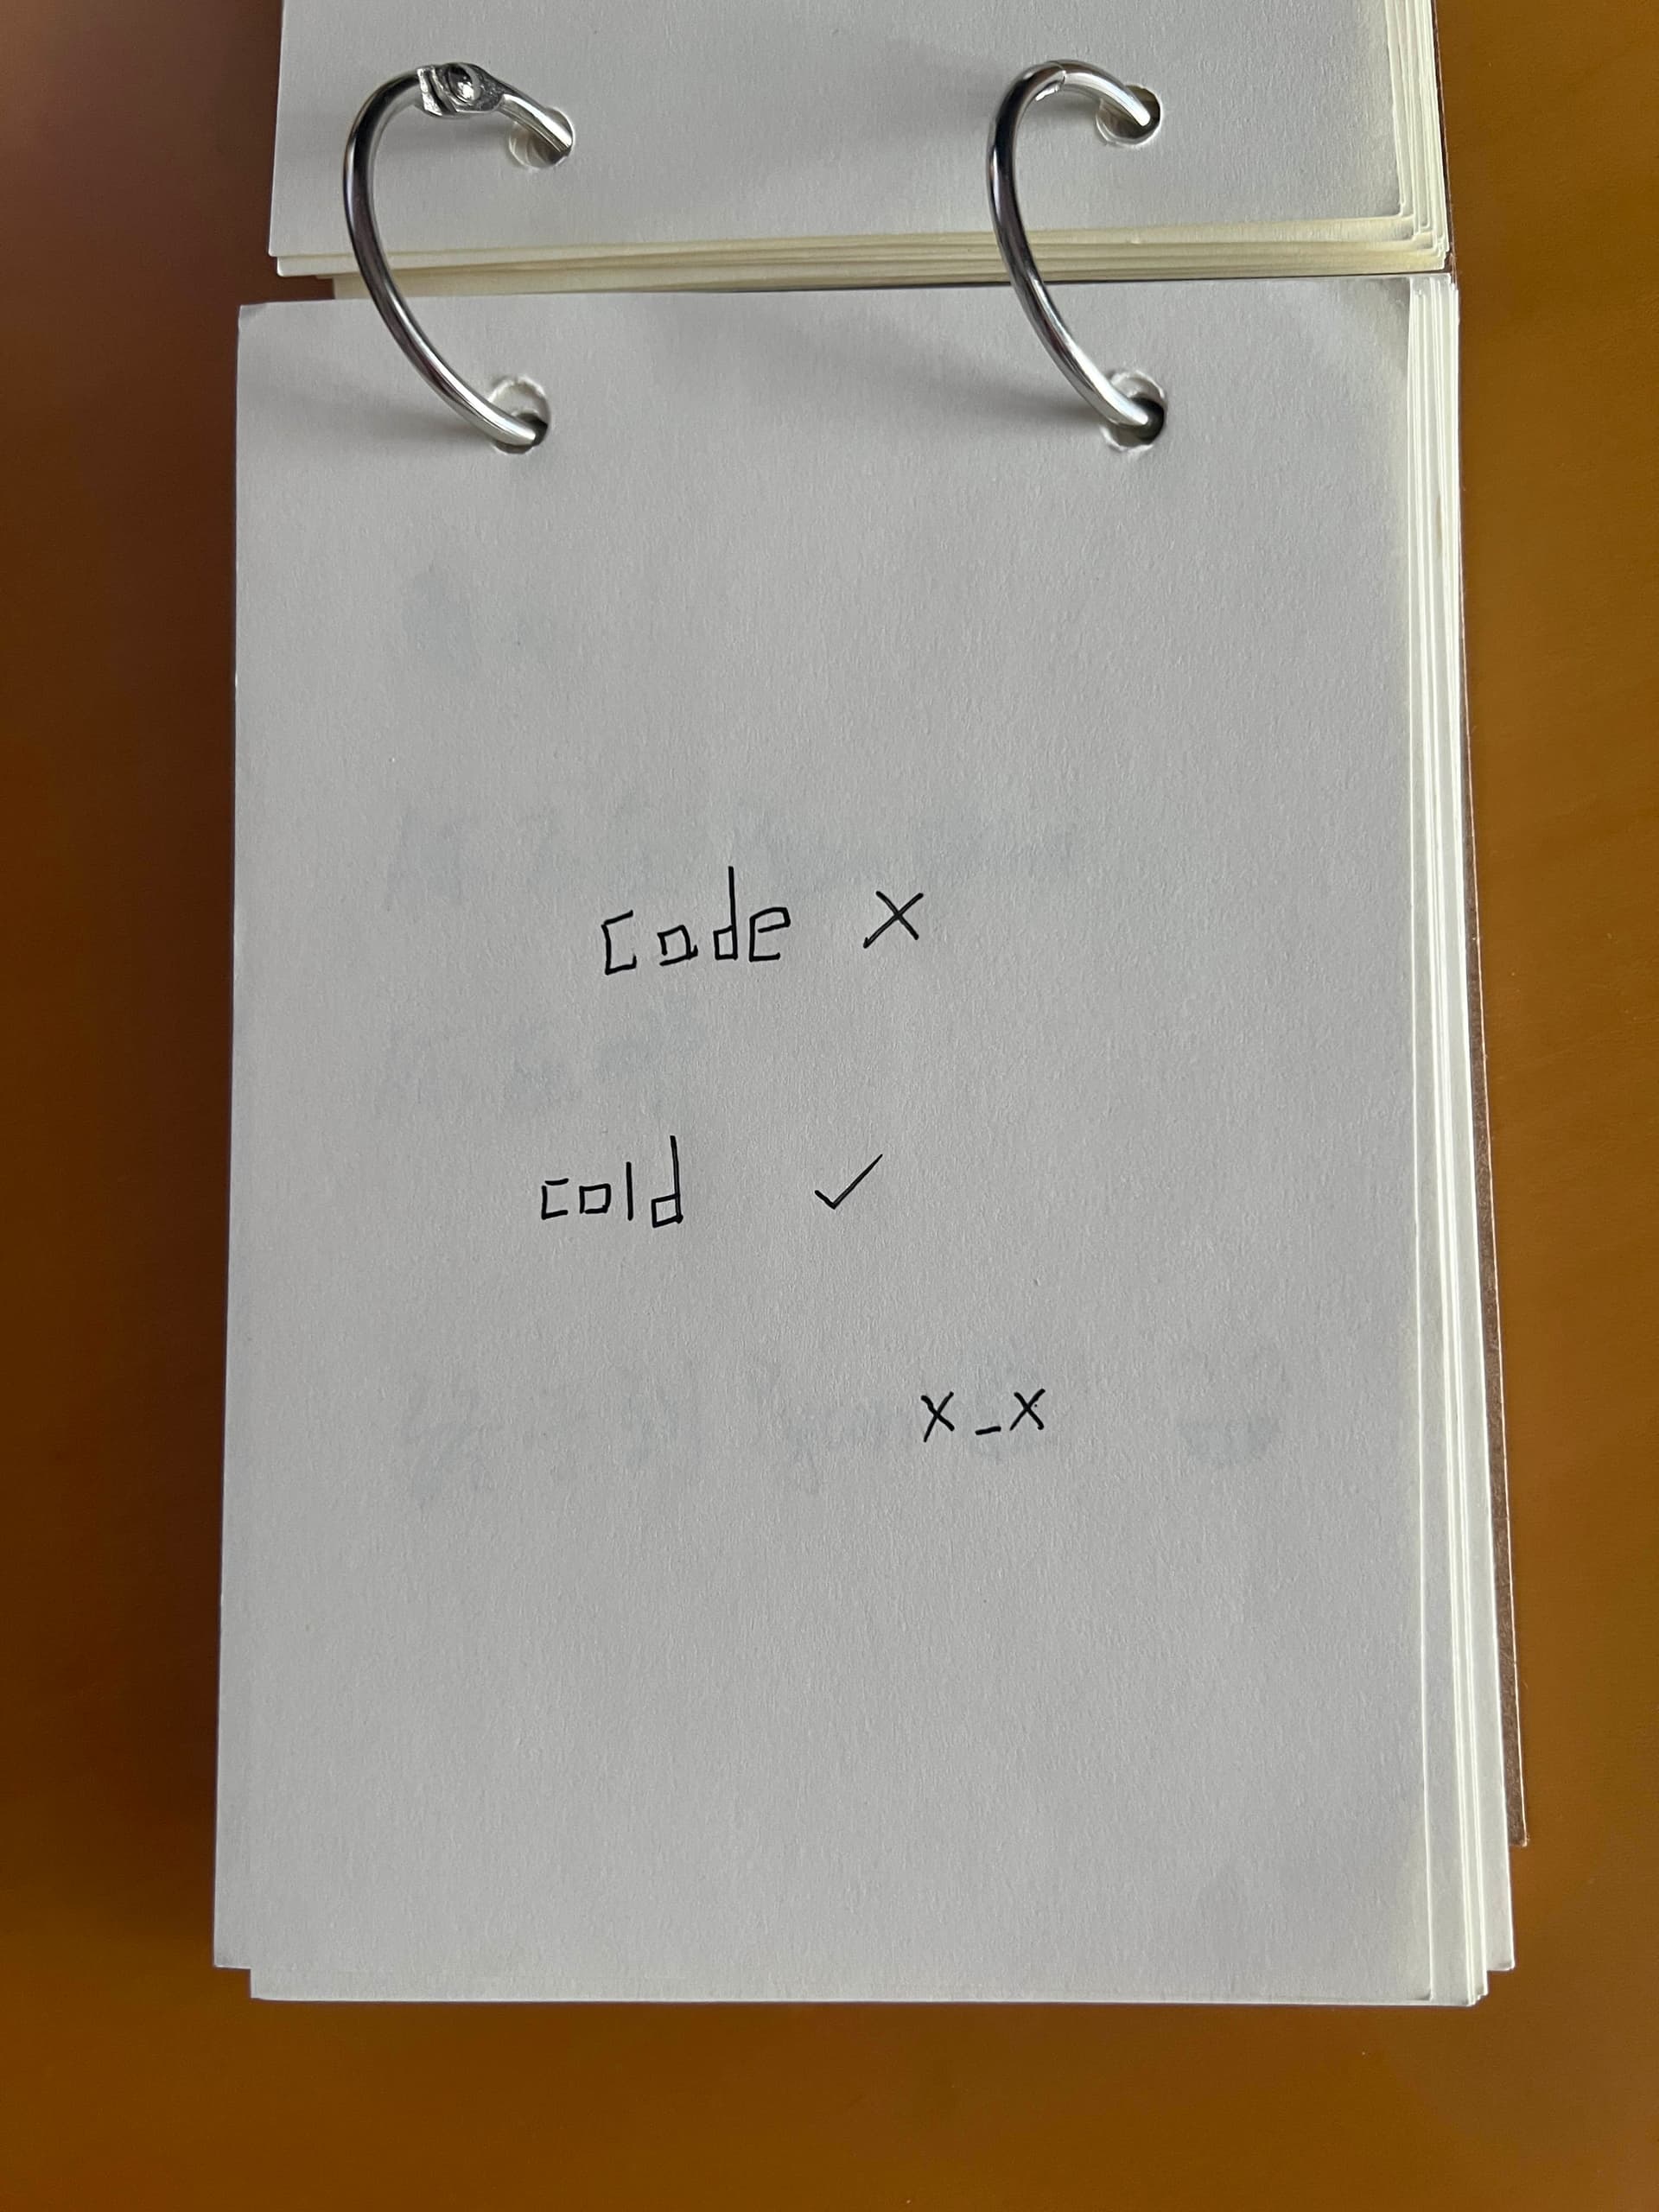 code ×
cold ✓
x_x